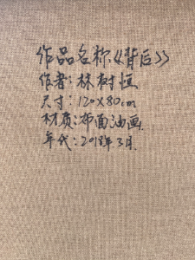 作品名称《背后》
作者：林树恒
尺寸：120X80cm
材质：布面油画
年代：2018年3月